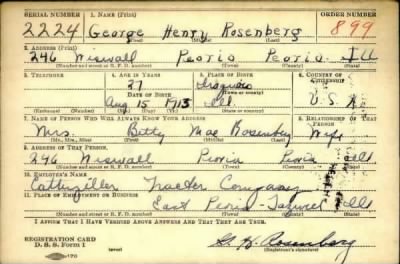 SERIAL NUMBER 1. NAME (Print) ORDER NUMBER
2224 George Henry Rosenberg 899
(First) (Middle) (Last)
2. ADDRESS (Print)
246 Wiswall Peoria Peoria Ill
(Number and street or R. F. D. number) (Town) (County) (State)
3. TELEPHONE 4. AGE IN YEARS 5. PLACE OF BIRTH 6. COUNTRY OF CITIZENSHIP
27 Iroquois
DATE OF BIRTH (Town or county)
Aug 15 1913 Ill. U. S. A.
(Exchange) (Number) (Mo.) (Day) (Yr.) (State or country)
7. NAME OF PERSON WHO WILL ALWAYS KNOW YOUR ADDRESS 8. RELATIONSHIP OF THAT PERSON
Mrs. Betty Mae Rosenberg Wife
(Mr., Mrs., Miss) (First) (Middle) (Last)
9. ADDRESS OF THAT PERSON
246 Wiswall Peoria Peoria Ills
(Number and street or R. F. D. number) (Town) (County) (State)
10. EMPLOYER'S NAME
Catterpiller Tractor Company
11. PLACE OF EMPLOYMENT OR BUSINESS
East Peoria - Tazwell Ills
(Number and street or R. F. D. number) (Town) (County) (State)
I AFFIRM THAT I HAVE VERIFIED ABOVE ANSWERS AND THAT THEY ARE TRUE.
REGISTRATION CARD
D. S. S. Form 1 G. H. Rosenberg
(Registrant's signature)